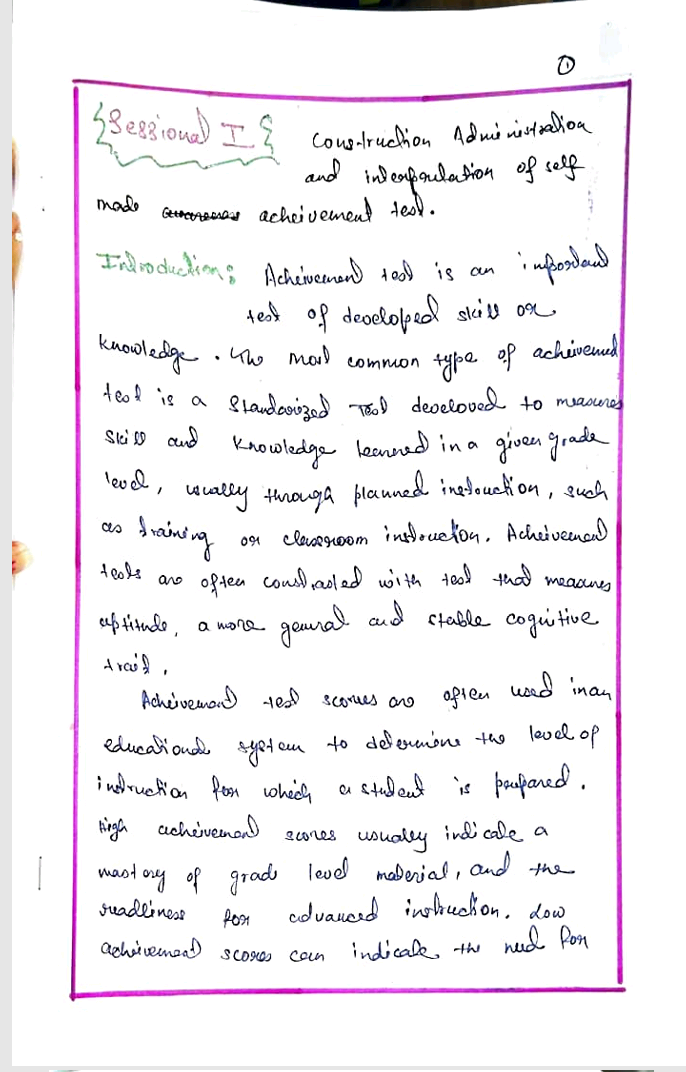 1
Sessional I
Construction Administration
and interpretation of self
made acheivement test.
Introduction: Acheivement test is an important
test of developed skill or
knowledge. The most common type of acheivement
test is a Standarized Test developed to measures
skill and knowledge learned in a given grade
level, usually through planned instruction, such
as training or classroom instruction. Acheivement
tests are often contrasted with test that measures
aptitude, a more general and stable cognitive
trait.
Acheivement test scorres are often used in an
educational system to determine the level of
instruction for which a student is prepared.
High acheivement scores usually indicate a
mastory of grade level material, and the
readliness for advanced instruction. Low
acheivement scores can indicate the need for